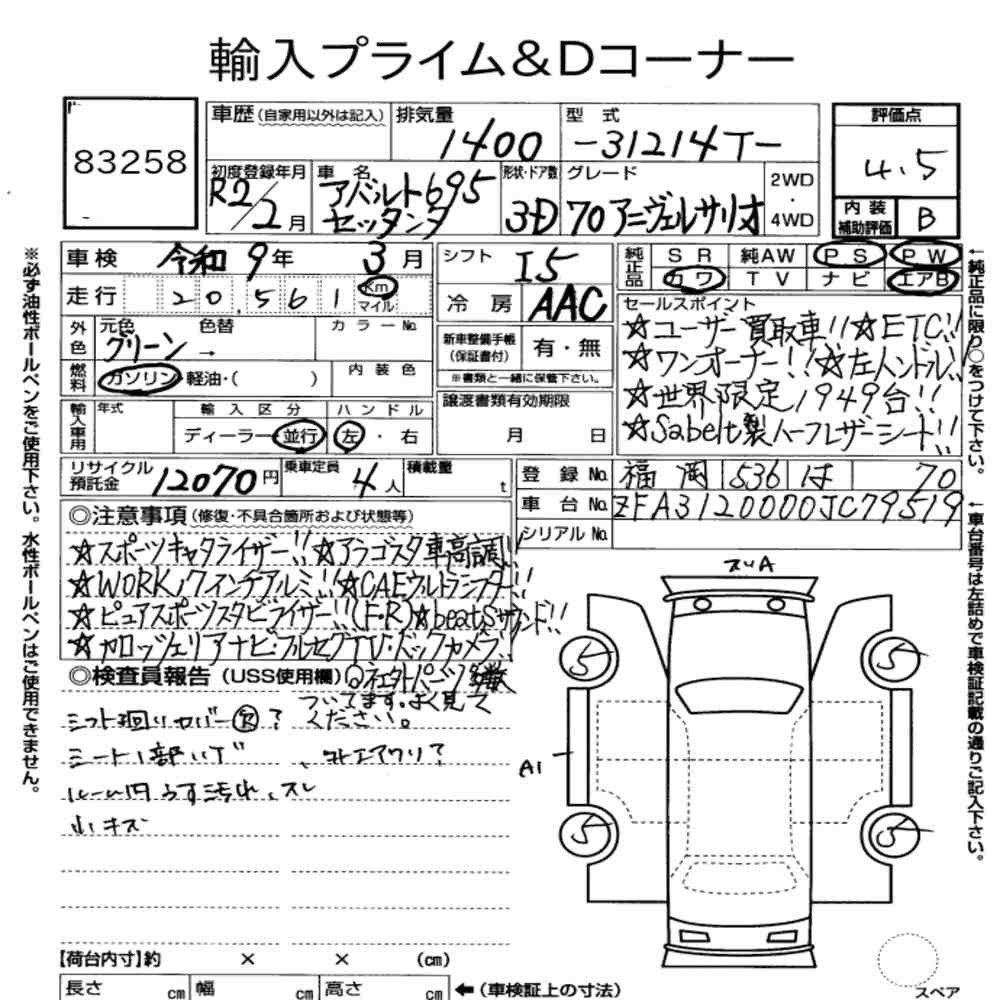 輸入プライム&Dコーナー
83258
車歴(自家用以外は記入) 排気量 1400 型式 -31214T-
評価点 4.5
初度登録年月 R2/2月 車名 アバルト695 セッタンタ 形状・ドア数 3D グレード 70アニヴェルサリオ 2WD・4WD
内装補助評価 B
車検 令和9年3月 シフト I5
純正品 SR 純AW PS PW
カワ TV ナビ エアB
走行 20,561 Km マイル 冷房 AAC
外色 元色 グリーン → 色替 カラーNo.
新車整備手帳(保証書付) 有・無
※書類と一緒に保管下さい。
セールスポイント
☆ユーザー買取車!!☆ETC!!
☆ワンオーナー!!☆左ハンドル!!
☆世界限定1949台!!
☆Sabelt製ハーフレザーシート!!
燃料 ガソリン 軽油・( ) 内装色
譲渡書類有効期限 月 日
輸入車用 年式 輸入区分 ハンドル
ディーラー・並行 左・右
リサイクル預託金 12070円 乗車定員 4人 積載量 t
登録No. 福岡 536 は 70
車台No. ZFA3120000JC79519
シリアルNo.
◎注意事項(修復・不具合箇所および状態等)
☆スポーツキャタライザー!!☆アラゴスタ車高調!!
☆WORK17インチアルミ!!☆CAEウルトラシフター!!
☆ピュアスポーツスタビライザー!!(F・R)☆beatSサウンド!!
☆カロッツェリアナビ・フルセグTV・バックカメラ!!
◎検査員報告(USS使用欄)
ついてます。よく見て
ください。
シフト廻りカバー欠?
シート1部ハゲ
外エアクリ?
ルーム内うす汚れ、スレ
小キズ
スリA
A1
【荷台内寸】約 × × (cm)
長さ cm 幅 cm 高さ cm ←(車検証上の寸法)
スペア
※必ず油性ボールペンをご使用下さい。水性ボールペンはご使用できません。
←純正品に限り○をつけて下さい。
←車台番号は左詰めで車検証記載の通りご記入下さい。